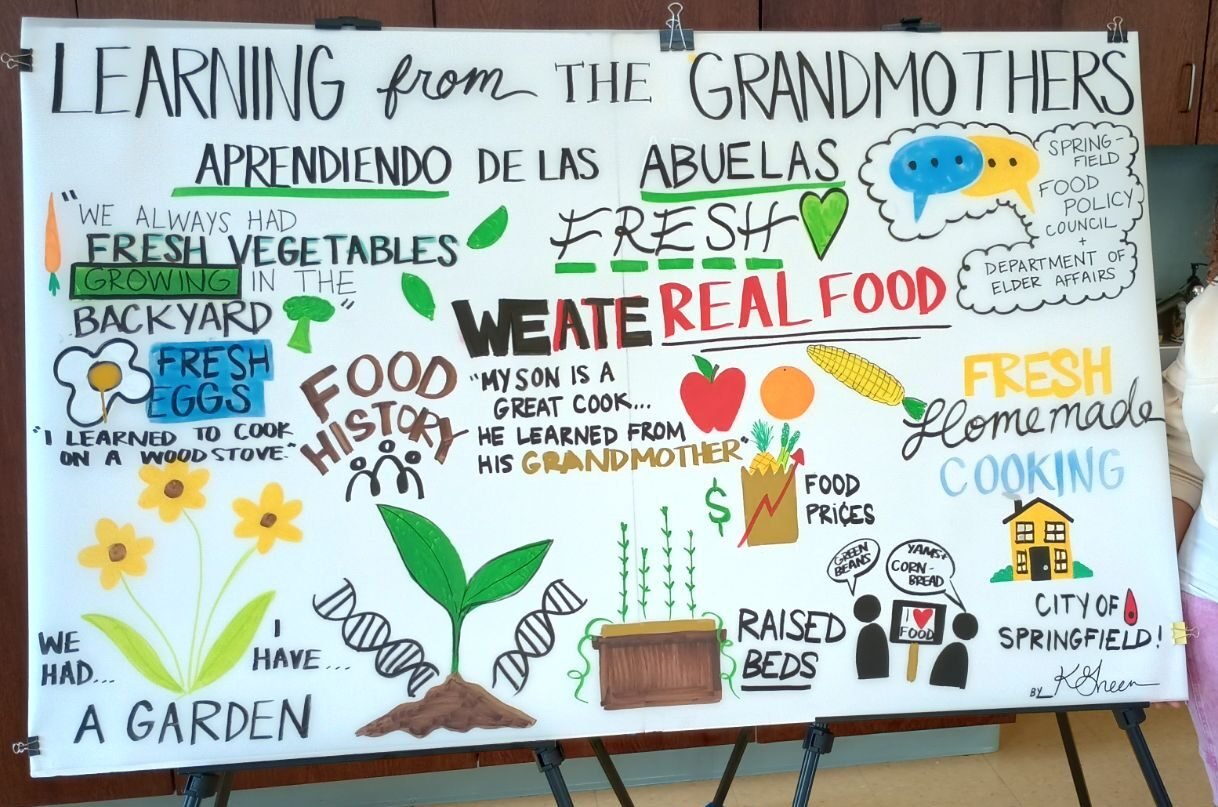 LEARNING from THE GRANDMOTHERS
APRENDIENDO DE LAS ABUELAS
SPRING-
FIELD
FOOD
POLICY
COUNCIL
+
DEPARTMENT OF
ELDER AFFAIRS
"WE ALWAYS HAD
FRESH VEGETABLES
GROWING IN THE
BACKYARD"
FRESH
WE ATE REAL FOOD
FRESH
EGGS
"I LEARNED TO COOK
ON A WOODSTOVE."
FOOD
HISTORY
"MY SON IS A
GREAT COOK...
HE LEARNED FROM
HIS GRANDMOTHER"
FRESH
Homemade
COOKING
$
FOOD
PRICES
WE
HAD...
I
HAVE...
A GARDEN
RAISED
BEDS
GREEN
BEANS
YAMS+
CORN-
BREAD
I
FOOD
CITY OF
SPRINGFIELD!
BY KSheen